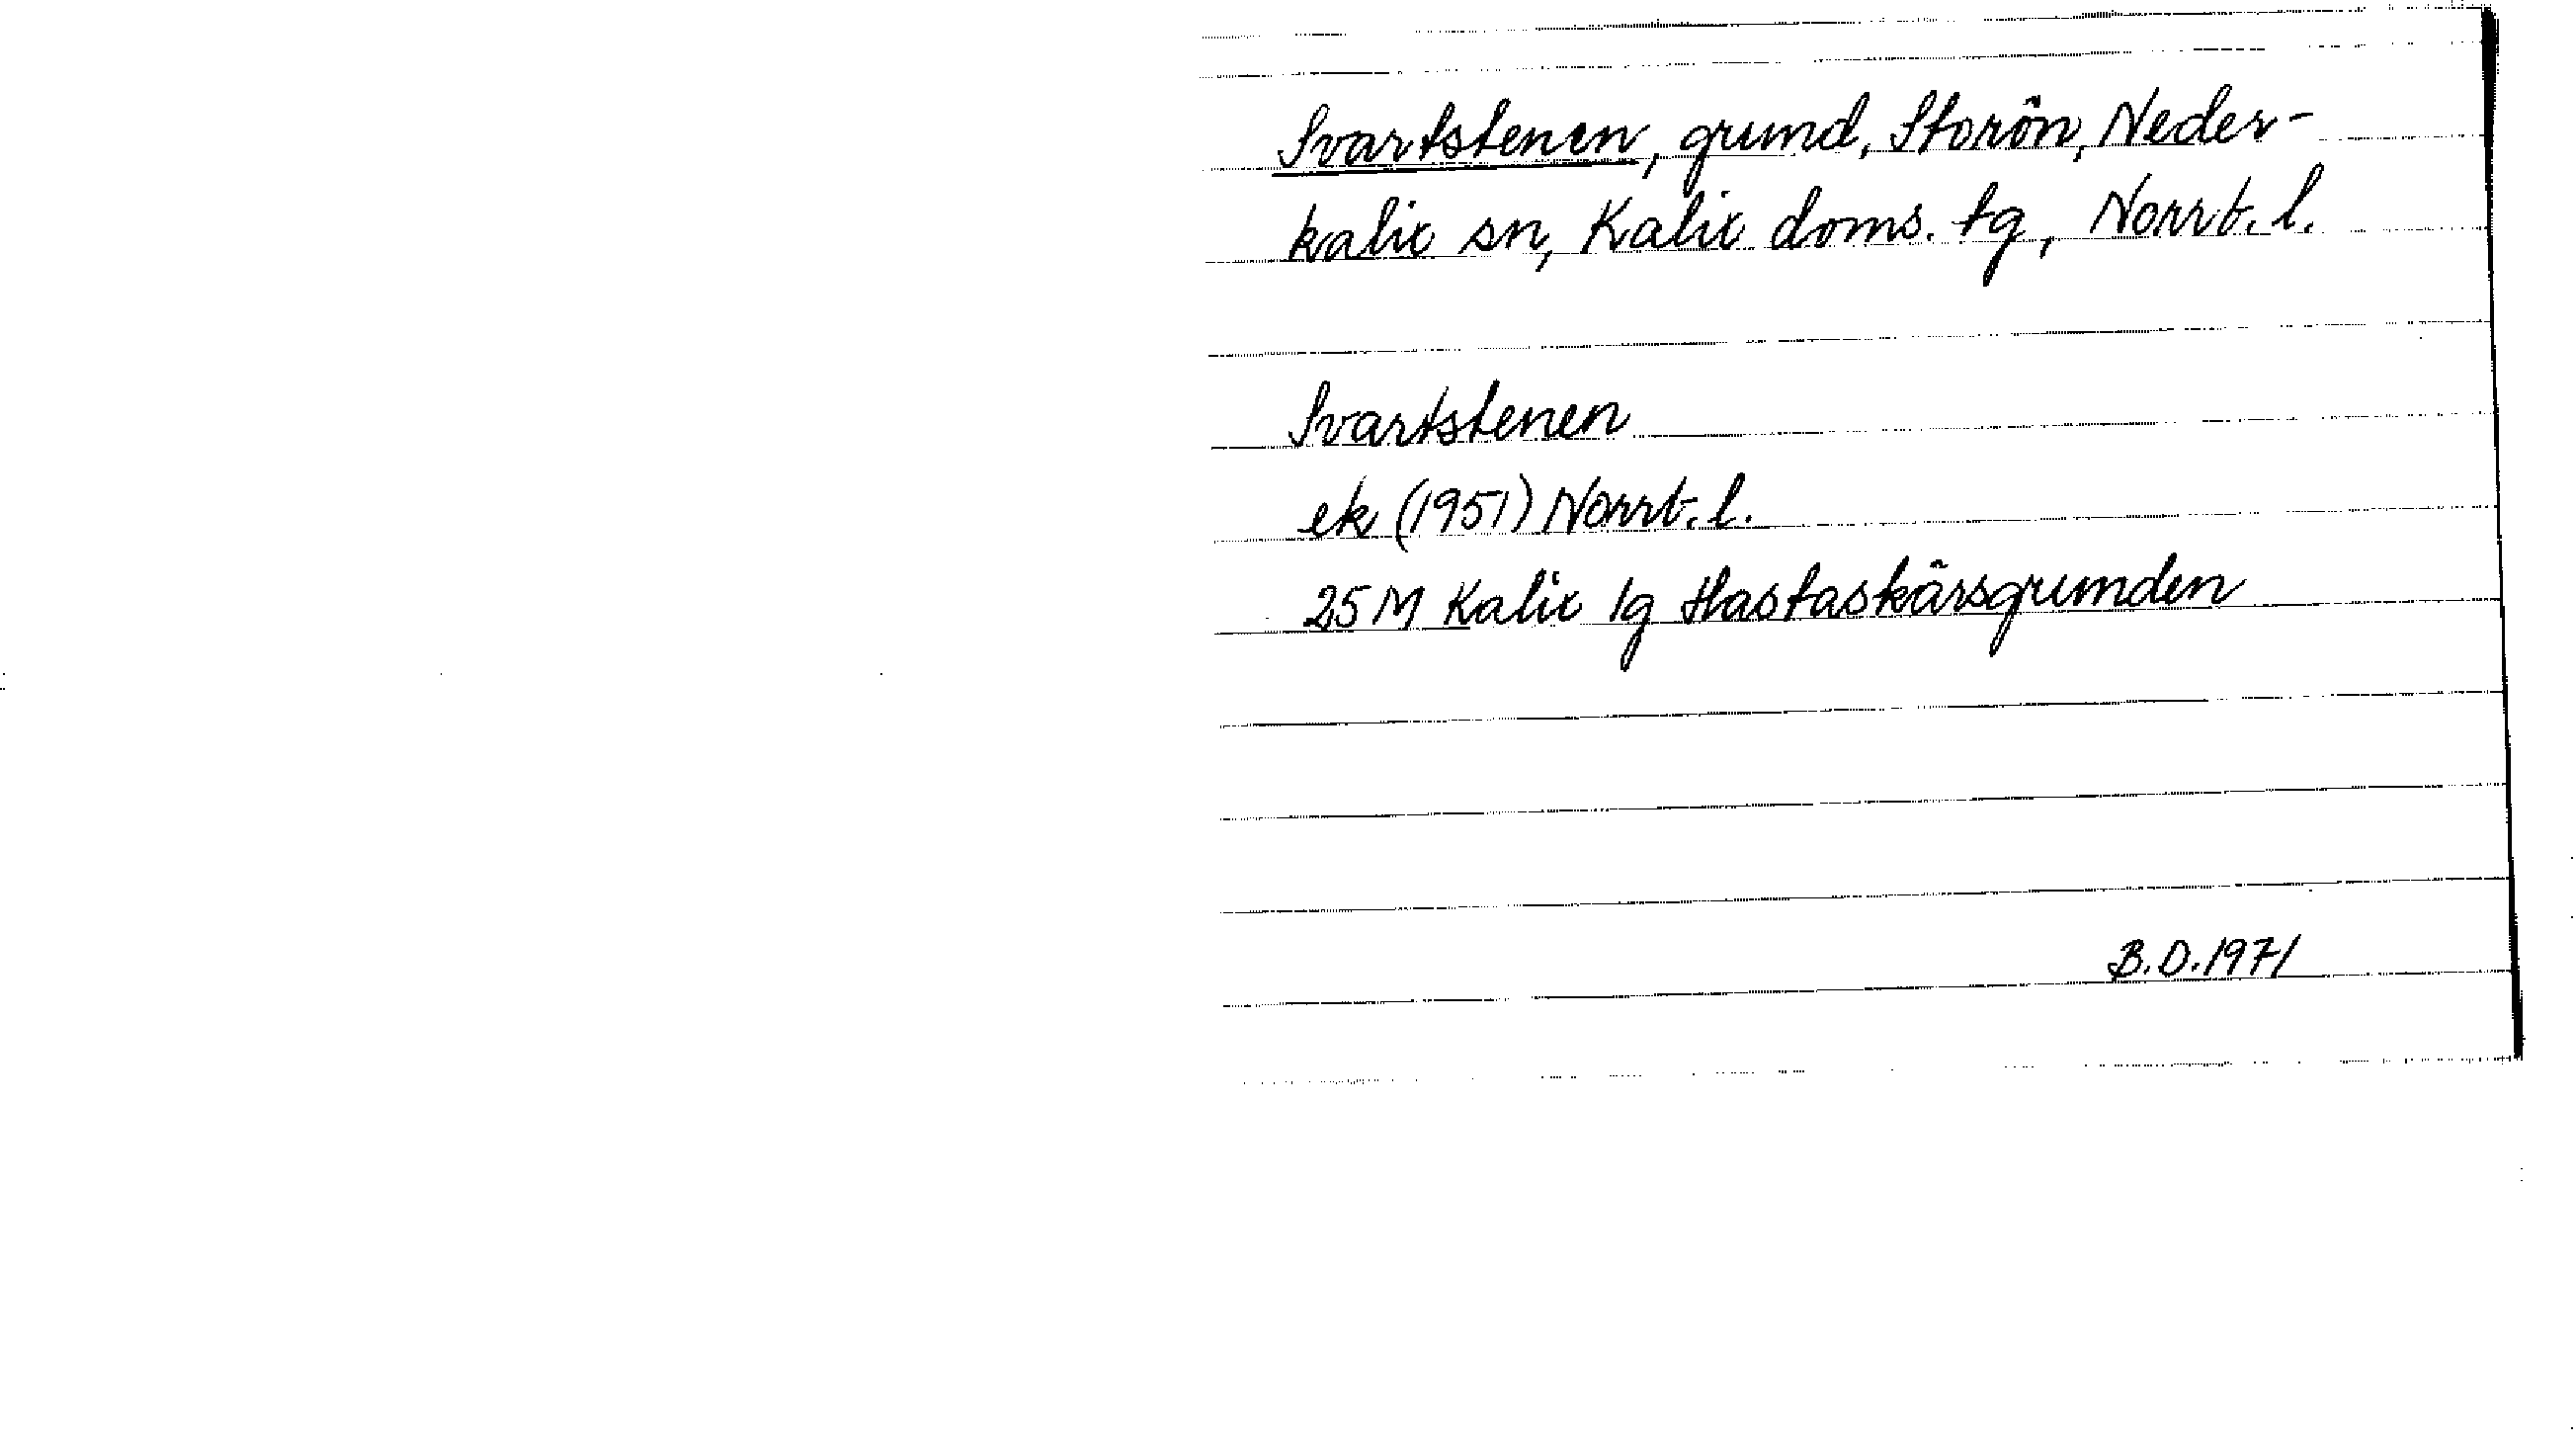 Svartstenen, grund, Storön, Neder-
kalix sn, Kalix doms. tg, Norrb. l.
Svartstenen
ek (1951) Norrb. l.
25 M Kalix 1g Hastaskärsgrunden
B.D. 1971